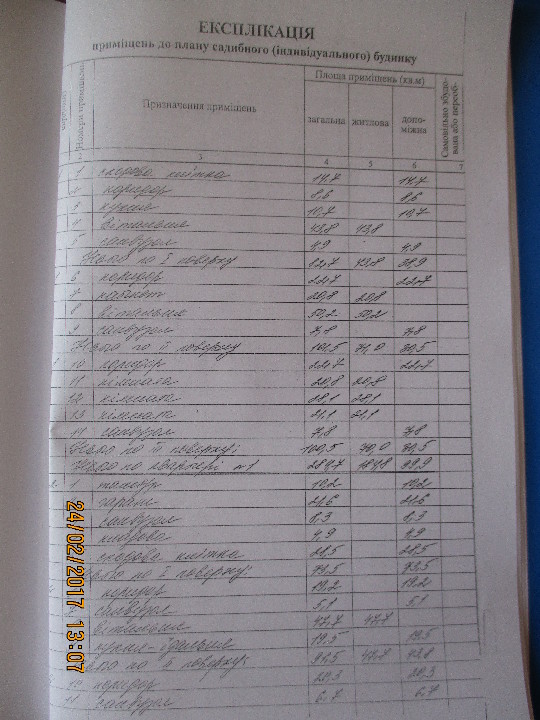 ЕКСПЛІКАЦІЯ
приміщень до плану садибного (індивідуального) будинку
Номери приміщень
Призначення приміщень
Площа приміщень (кв.м)
загальна житлова допо-міжна
Самовільно збудо-вана або переоб-
3 4 5 6 7
1 сходова клітка 14,7 14,7
2 коридор 8,6 8,6
3 кухня 10,7 10,7
4 вітальня 43,8 43,8
5 санвузол 4,9 4,9
по I поверху 82,7 43,8 38,9
6 коридор 22,7 22,7
7 кабінет 20,8 20,8
8 вітальня 50,2 50,2
9 санвузол 7,8 7,8
по II поверху 101,5 71,0 30,5
10 коридор 22,7 22,7
11 кімната 20,8 20,8
12 кімната 28,1 28,1
13 кімната 21,1 21,1
14 санвузол 7,8 7,8
по поверху: 100,5 70,0 30,5
по квартирі №1 284,7 184,8 99,9
1 тамбур 10,2 10,2
гараж 21,6 21,6
санвузол 8,3 8,3
4,9 4,9
сходова клітка 28,5 28,5
по I поверху: 73,5 73,5
коридор 19,2 19,2
санвузол 5,1 5,1
вітальня 47,7 47,7
кухня-їдальня 19,5 19,5
по II поверху: 91,5 47,7 43,8
коридор 20,3 20,3
санвузол 6,7 6,7
24/02/2017 13:07